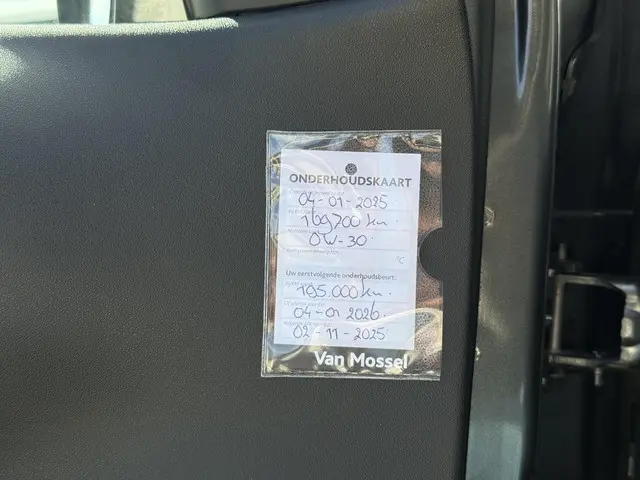 ONDERHOUDSKAART
04-01-2025
169700 km.
0W-30.
°C
Uw eerstvolgende onderhoudsbeurt:
195.000 km.
04-01 2026.
02-11-2025
Van Mossel